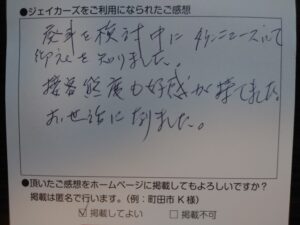 ●ジェイカーズをご利用になられたご感想
廃車を検討中に タウンニュースにて
御社を知りました。
接客態度も好感が持てました。
お世話になりました。
●頂いたご感想をホームページに掲載してもよろしいですか?
掲載は匿名で行います。(例:町田市K様)
☑ 掲載してよい □ 掲載不可